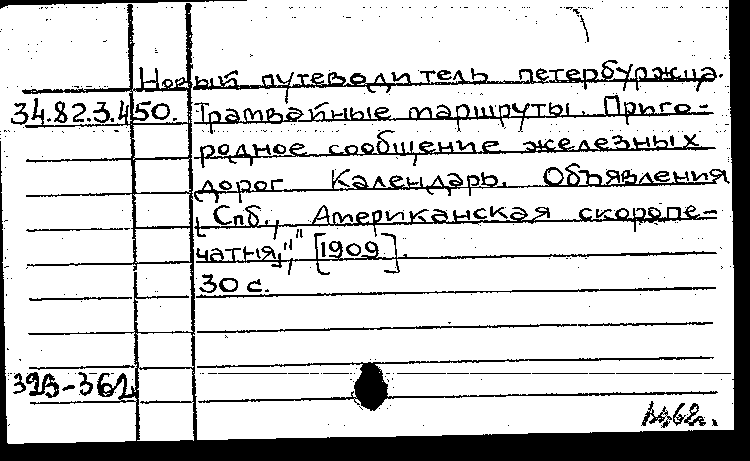 Новый путеводитель петербуржца.
34.82.3.450. Трамвайные маршруты. Приго-
родное сообщение железных
дорог. Календарь. Объявления
[Спб., Американская скоропе-
чатня,"] [1909].
30 с.